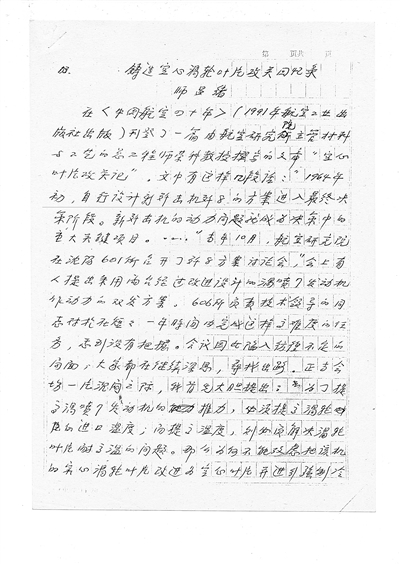 第 页共 页
铸造空心涡轮叶片攻关回忆录
师昌绪
在《中国航空四十年》（1991年航空工业出
版社出版）刊载了一篇由航空研究院主管材料
与工艺的总工程师荣科教授撰写的文章“空心
叶片攻关记”，文中有这样段话：“1964年
初，自行设计新歼击机歼8的方案进入最终决
策阶段。新歼击机的动力问题就成为决策中的
重大关键项目。……”“当年10月，航空研究院
在沈阳601所召开了歼8方案讨论会，“会上有
人提出采用两台经过改进设计的涡喷7发动机
作动力的双发方案，606所负责技术领导的同
志对于在短短一年时间内完成这样高难度的任
务，感到没有把握。会议因此陷入
局面，大家都在继续深思，寻找出路。正当会
场一片沉闷之际，我首先大胆提出：为了提
高涡喷7发动机的推力，必须提高涡轮
的进口温度；而提高温度，则必须解决涡轮
叶片耐高温的问题。那么为何不能考虑把该机
的实心涡轮叶片改进为空心叶片并进行强制冷